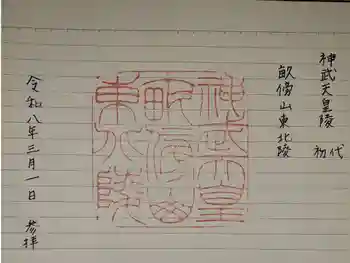 神武天皇陵
初代
畝傍山東北陵
神武天皇
畝傍山
東北陵
令和八年三月一日 参拝